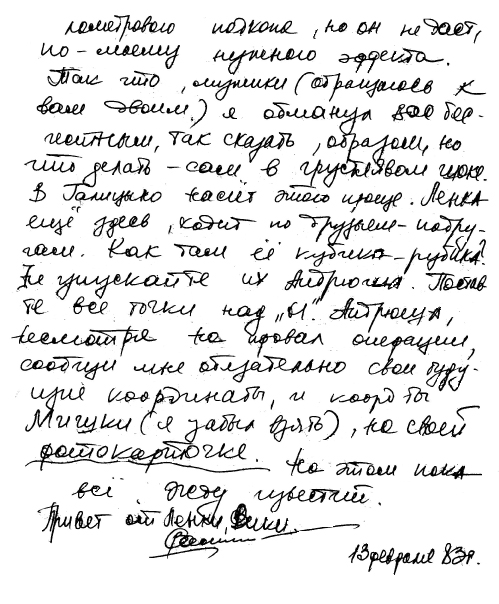 лометрового подкопа, но он не даёт,
по-моему нужного эффекта.
Так что, мужики (обращаюсь к
вам двоим) я обманул вас бес-
чными, так сказать, образом, но
что делать – сам в грустном шоке.
В Галицыно насчёт этого проще. Ленка
ещё здесь, ходит по друзьям-подру-
гам. Как там её кубик-рубика?
Не упускайте их Андрюша. Поставь
те все точки над „Ы". Андрюша,
несмотря на провал операции,
сообщи мне обязательно свои буду-
щие координаты, и коорд-ты
Мишки (я забыл взять), на своей
фотокарточке. На этом пока
всё. Жду известий.
Привет от Ленки, Вики.
13 февраля 83г.